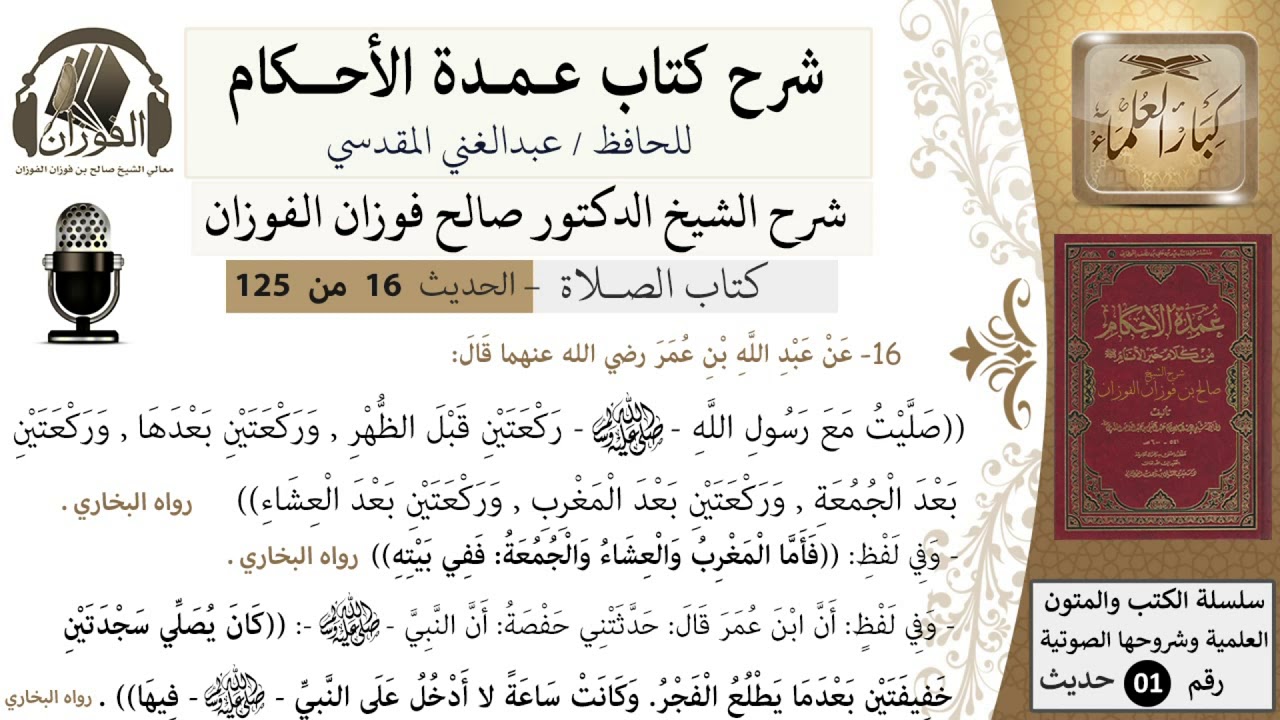 شرح كتاب عـمـدة الأحـــكام
للحافظ / عبدالغني المقدسي
شرح الشيخ الدكتور صالح فوزان الفوزان
كتاب الصـــلاة – الحديث 16 من 125
16- عَنْ عَبْدِ اللَّهِ بْنِ عُمَرَ رضي الله عنهما قَالَ:
((صَلَّيْتُ مَعَ رَسُولِ اللَّهِ - ﷺ - رَكْعَتَيْنِ قَبْلَ الظُّهْرِ , وَرَكْعَتَيْنِ بَعْدَهَا , وَرَكْعَتَيْنِ
بَعْدَ الْجُمُعَةِ , وَرَكْعَتَيْنِ بَعْدَ الْمَغْرِبِ , وَرَكْعَتَيْنِ بَعْدَ الْعِشَاءِ)) رواه البخاري .
- وَفِي لَفْظِ: ((فَأَمَّا الْمَغْرِبُ وَالْعِشَاءُ وَالْجُمُعَةُ: فَفِي بَيْتِهِ)) رواه البخاري .
- وَفِي لَفْظٍ: أَنَّ ابْنَ عُمَرَ قَالَ: حَدَّثَتْنِي حَفْصَةُ: أَنَّ النَّبِيَّ - ﷺ -: ((كَانَ يُصَلِّي سَجْدَتَيْنِ
خَفِيفَتَيْنِ بَعْدَمَا يَطْلُعُ الْفَجْرُ. وَكَانَتْ سَاعَةً لا أَدْخُلُ عَلَى النَّبِيِّ - ﷺ - فِيهَا)) . رواه البخاري
الفوزان
معالي الشيخ صالح بن فوزان الفوزان
كِبَارُ العُلَمَاءُ
عُمْدَةُ الأَحْكَامِ
مِنْ كَلَامِ خَيْرِ الأَنَامِ ﷺ
شرح الشيخ
صالح بن فوزان الفوزان
تأليف
سلسلة الكتب والمتون
العلمية وشروحها الصوتية
رقم 01 حديث